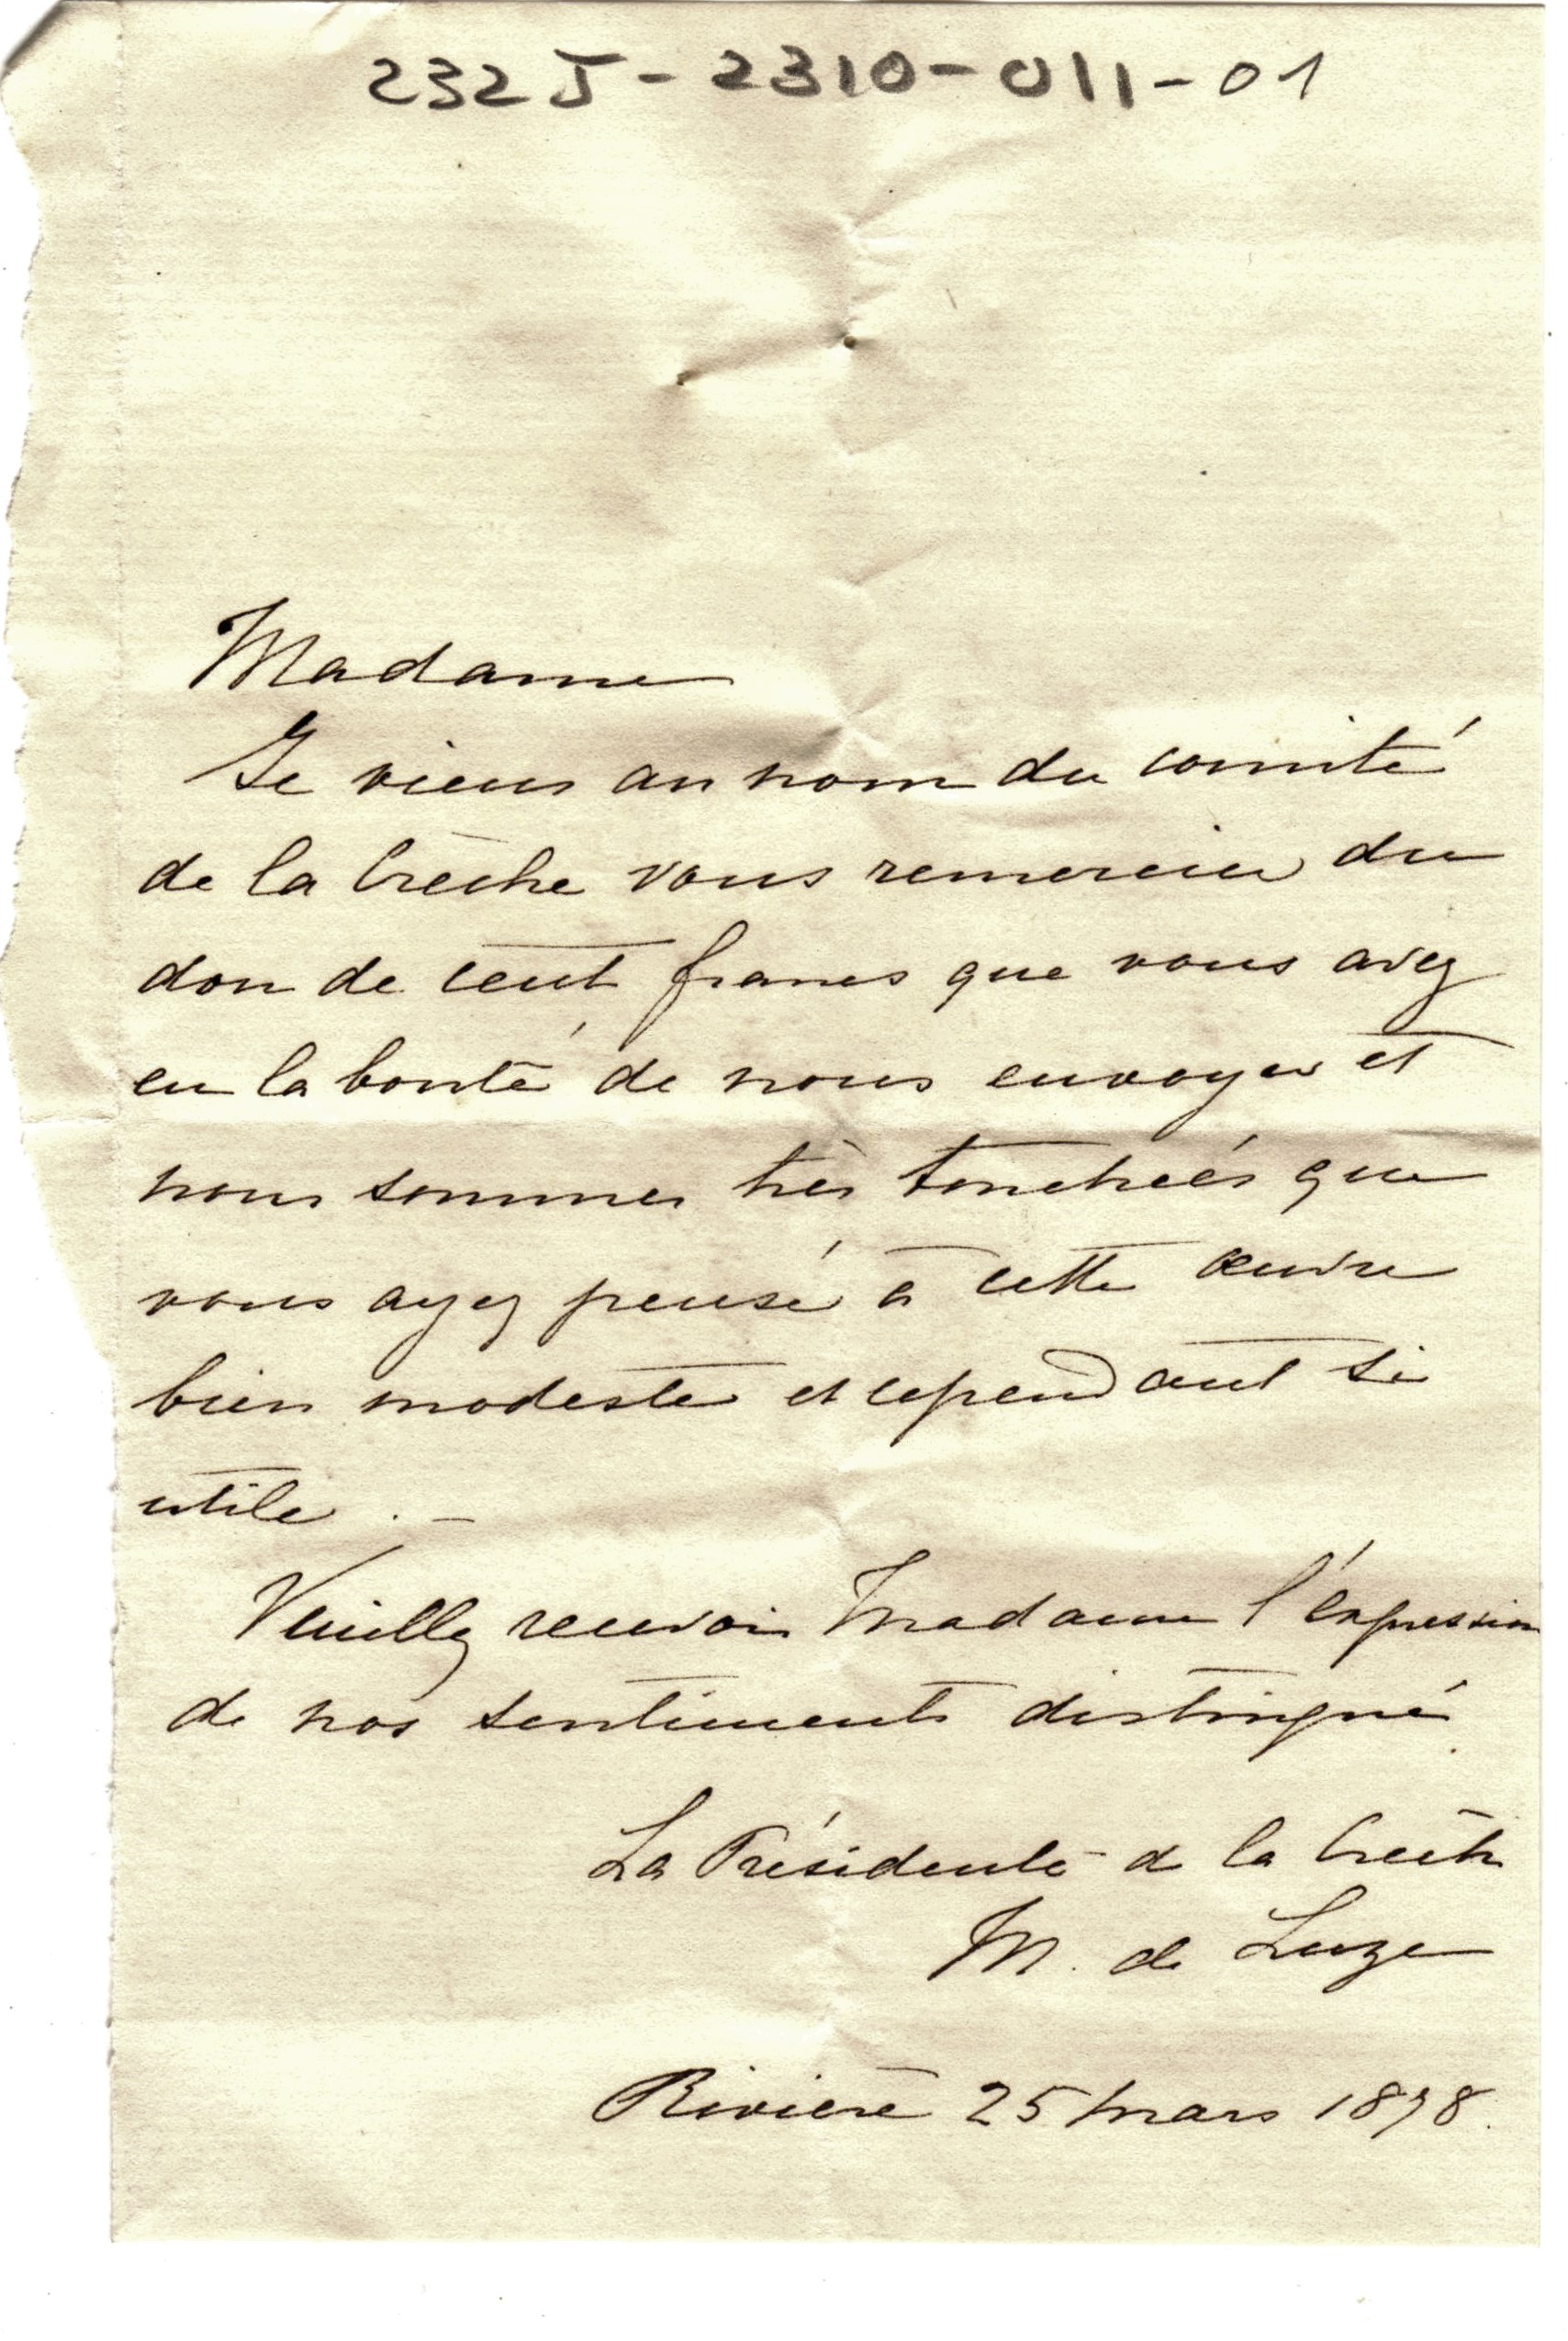 232 J - 2310 - 011 - 01
Madame
Je viens au nom du comité
de la Crèche vous remercier du
don de cent francs que vous avez
eu la bonté de nous envoyer et
nous sommes très touchées que
vous ayez pensé à cette œuvre
bien modeste et cependant si
utile . _
Veuillez recevoir Madame l'expression
de nos sentiments distingués
La Présidente de la Crèche
M. de Luze
Rivière 25 Mars 1898.